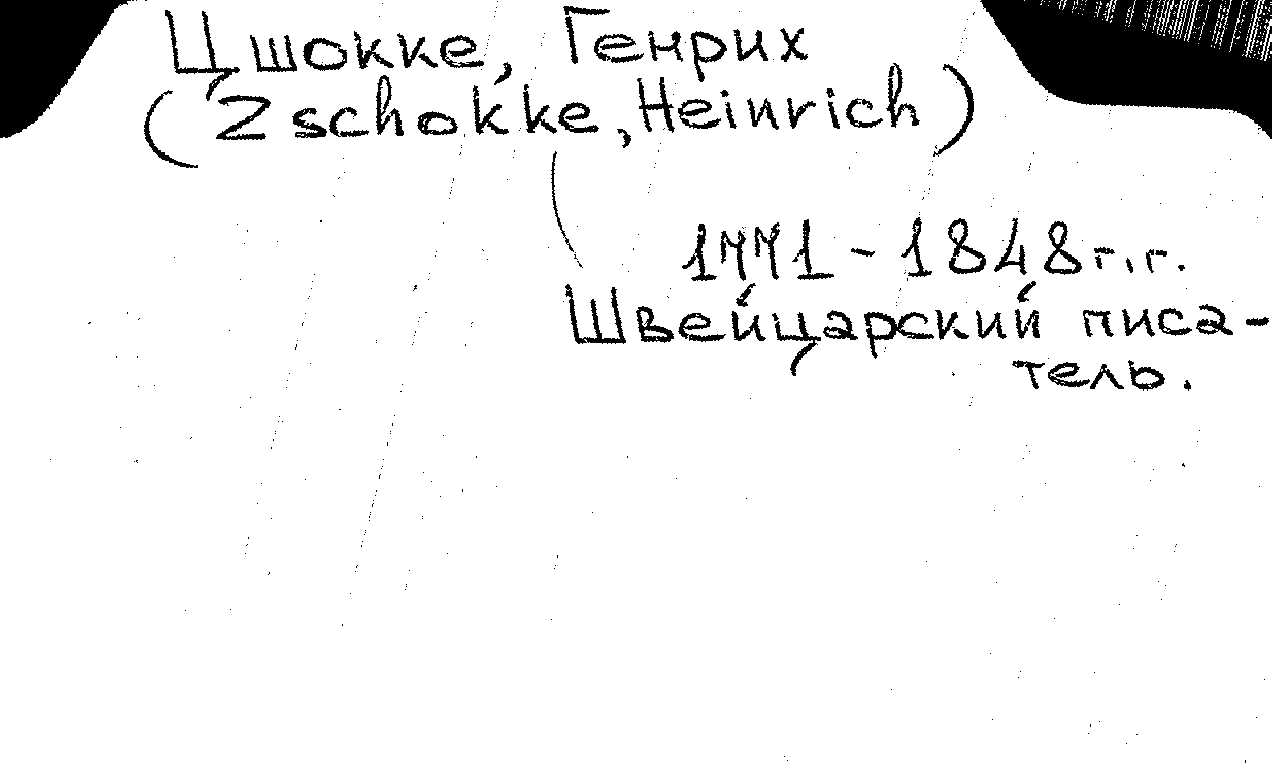 Цшокке, Генрих
(Zschokke, Heinrich)
1771 - 1848 г.г.
Швейцарский писа-
тель.